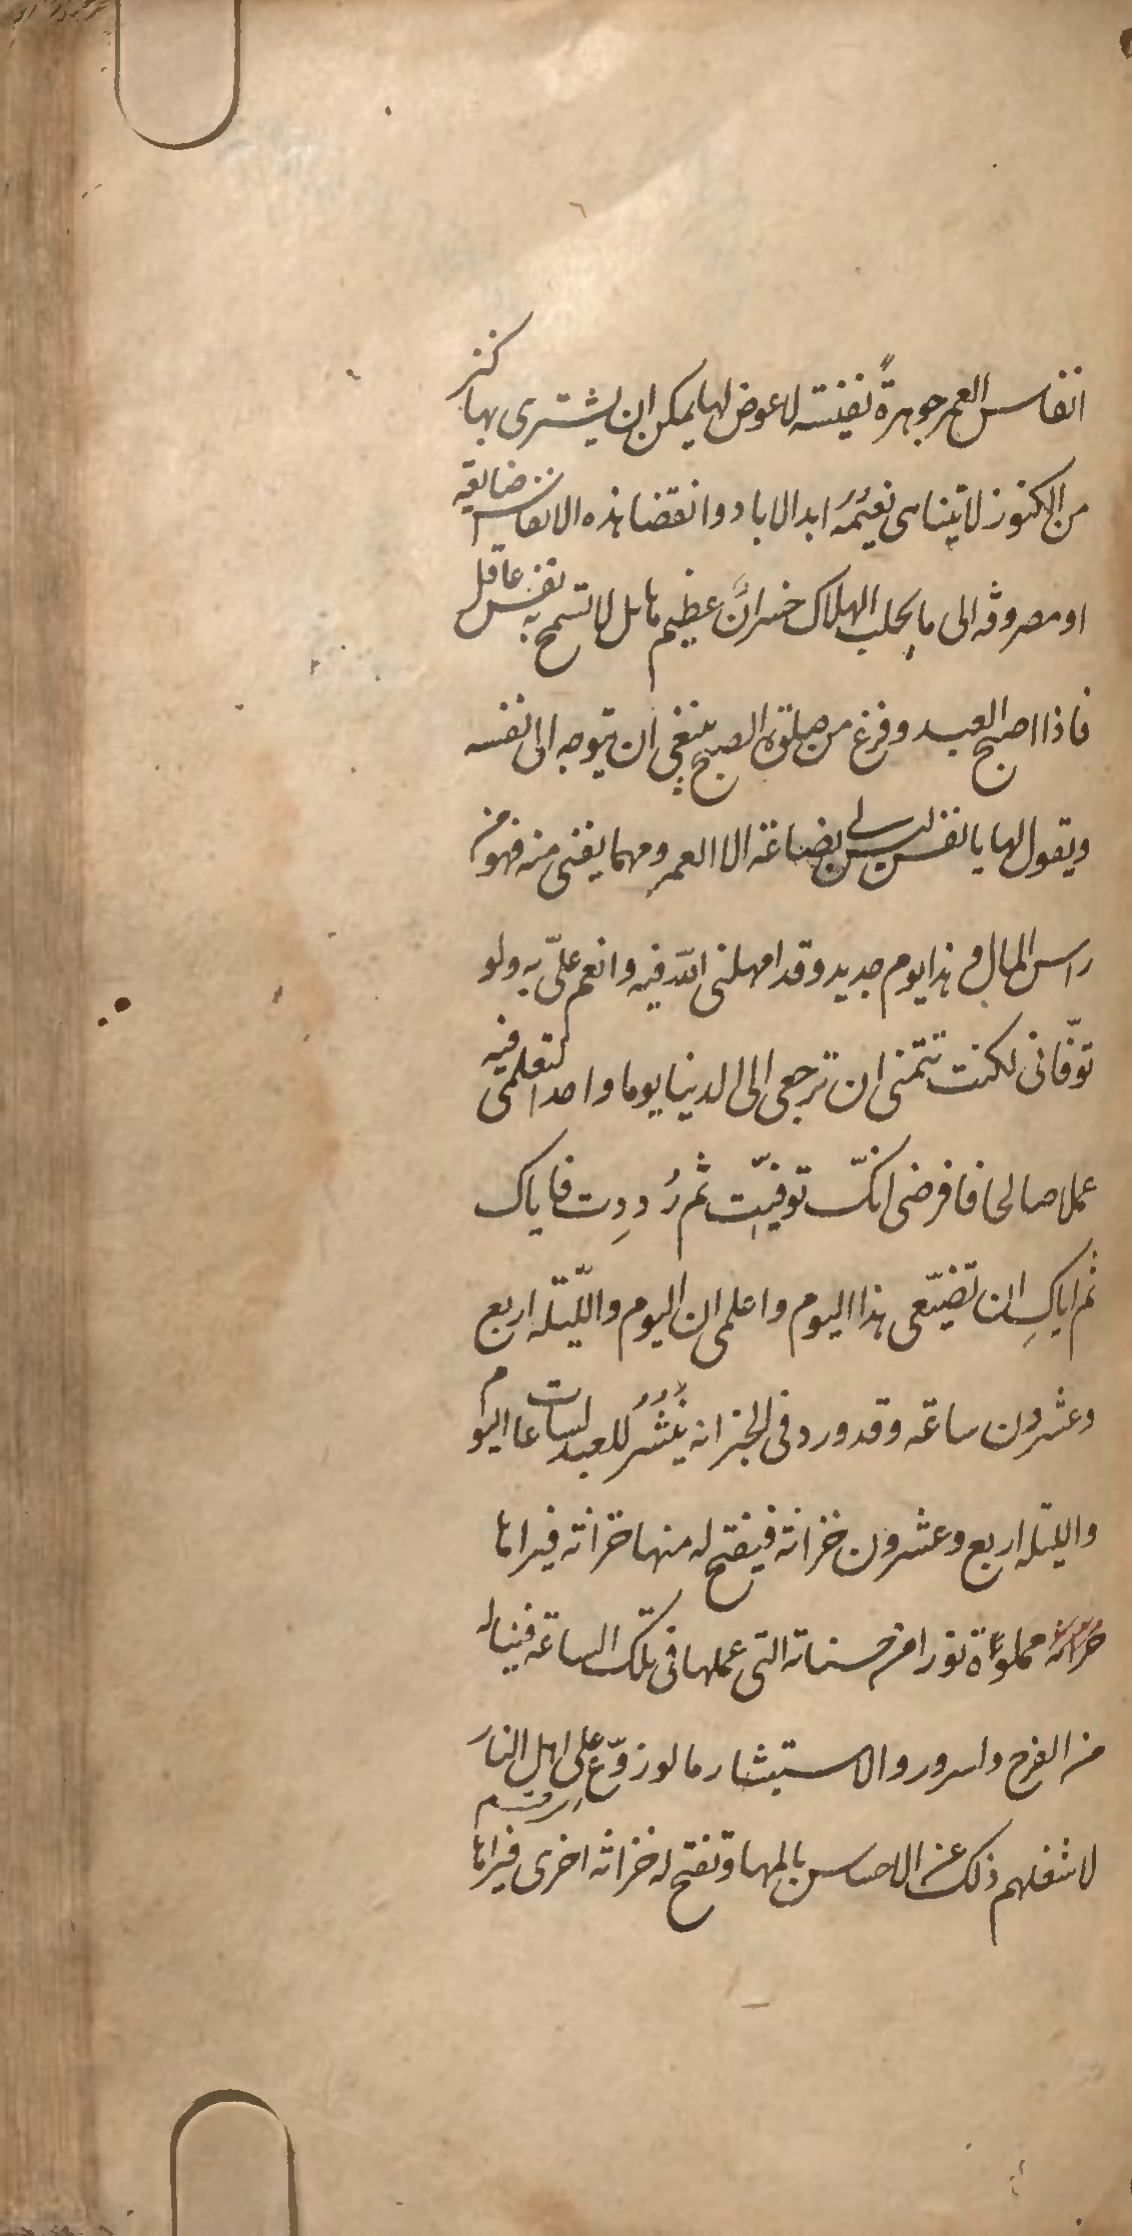 انفاس العمر جوهرةً نفيسته لاعوض لها يمكن ان يشترى بها كنز
من الكنوز لا يتناهى نعيمُهُ ابد الاباد وانقضا هذه الانفاس ضايعة
او مصروفه الى ما يجلب الهلاك خسرانٌ عظيم هائل لا تسمح به نفس عاقل
فاذا اصبح العبد وفرغ من صلوة الصبح ينبغى ان يتوجه الى نفسه
ويقول لها يا نفس ليس لى بضاعة الا العمر ومهما يفنى منه فهو من
راس المال و هذا يوم جديد وقد امهلنى الله فيه وانعم علىّ به ولو
توفّانى لكنت تتمنى ان ترجعى الى الدنيا يوما واحدا لتعلمى فيه
عملا صالحا فافرضى انكّ توفيّت ثم رُددِت فاياك
ثم اياكِ ان تضيّعى هذا اليوم واعلمى ان اليوم والليّله اربع
وعشرون ساعة وقد ورد فى الخبر انه يُنْشَرُ للعبد لساعات اليوم
والليله اربع وعشرون خزانة فيفتح له منها خزانة فيراها
خزانة مملوءًة نورا من حسناته التى عملها فى تلك الساعة فيناله
من الفرح والسرور والاستبشار ما لو زوّع على اهل النار
لاشغلهم ذلك عن الاحساس بالمها وتفتح له خزانة اخرى فيراها